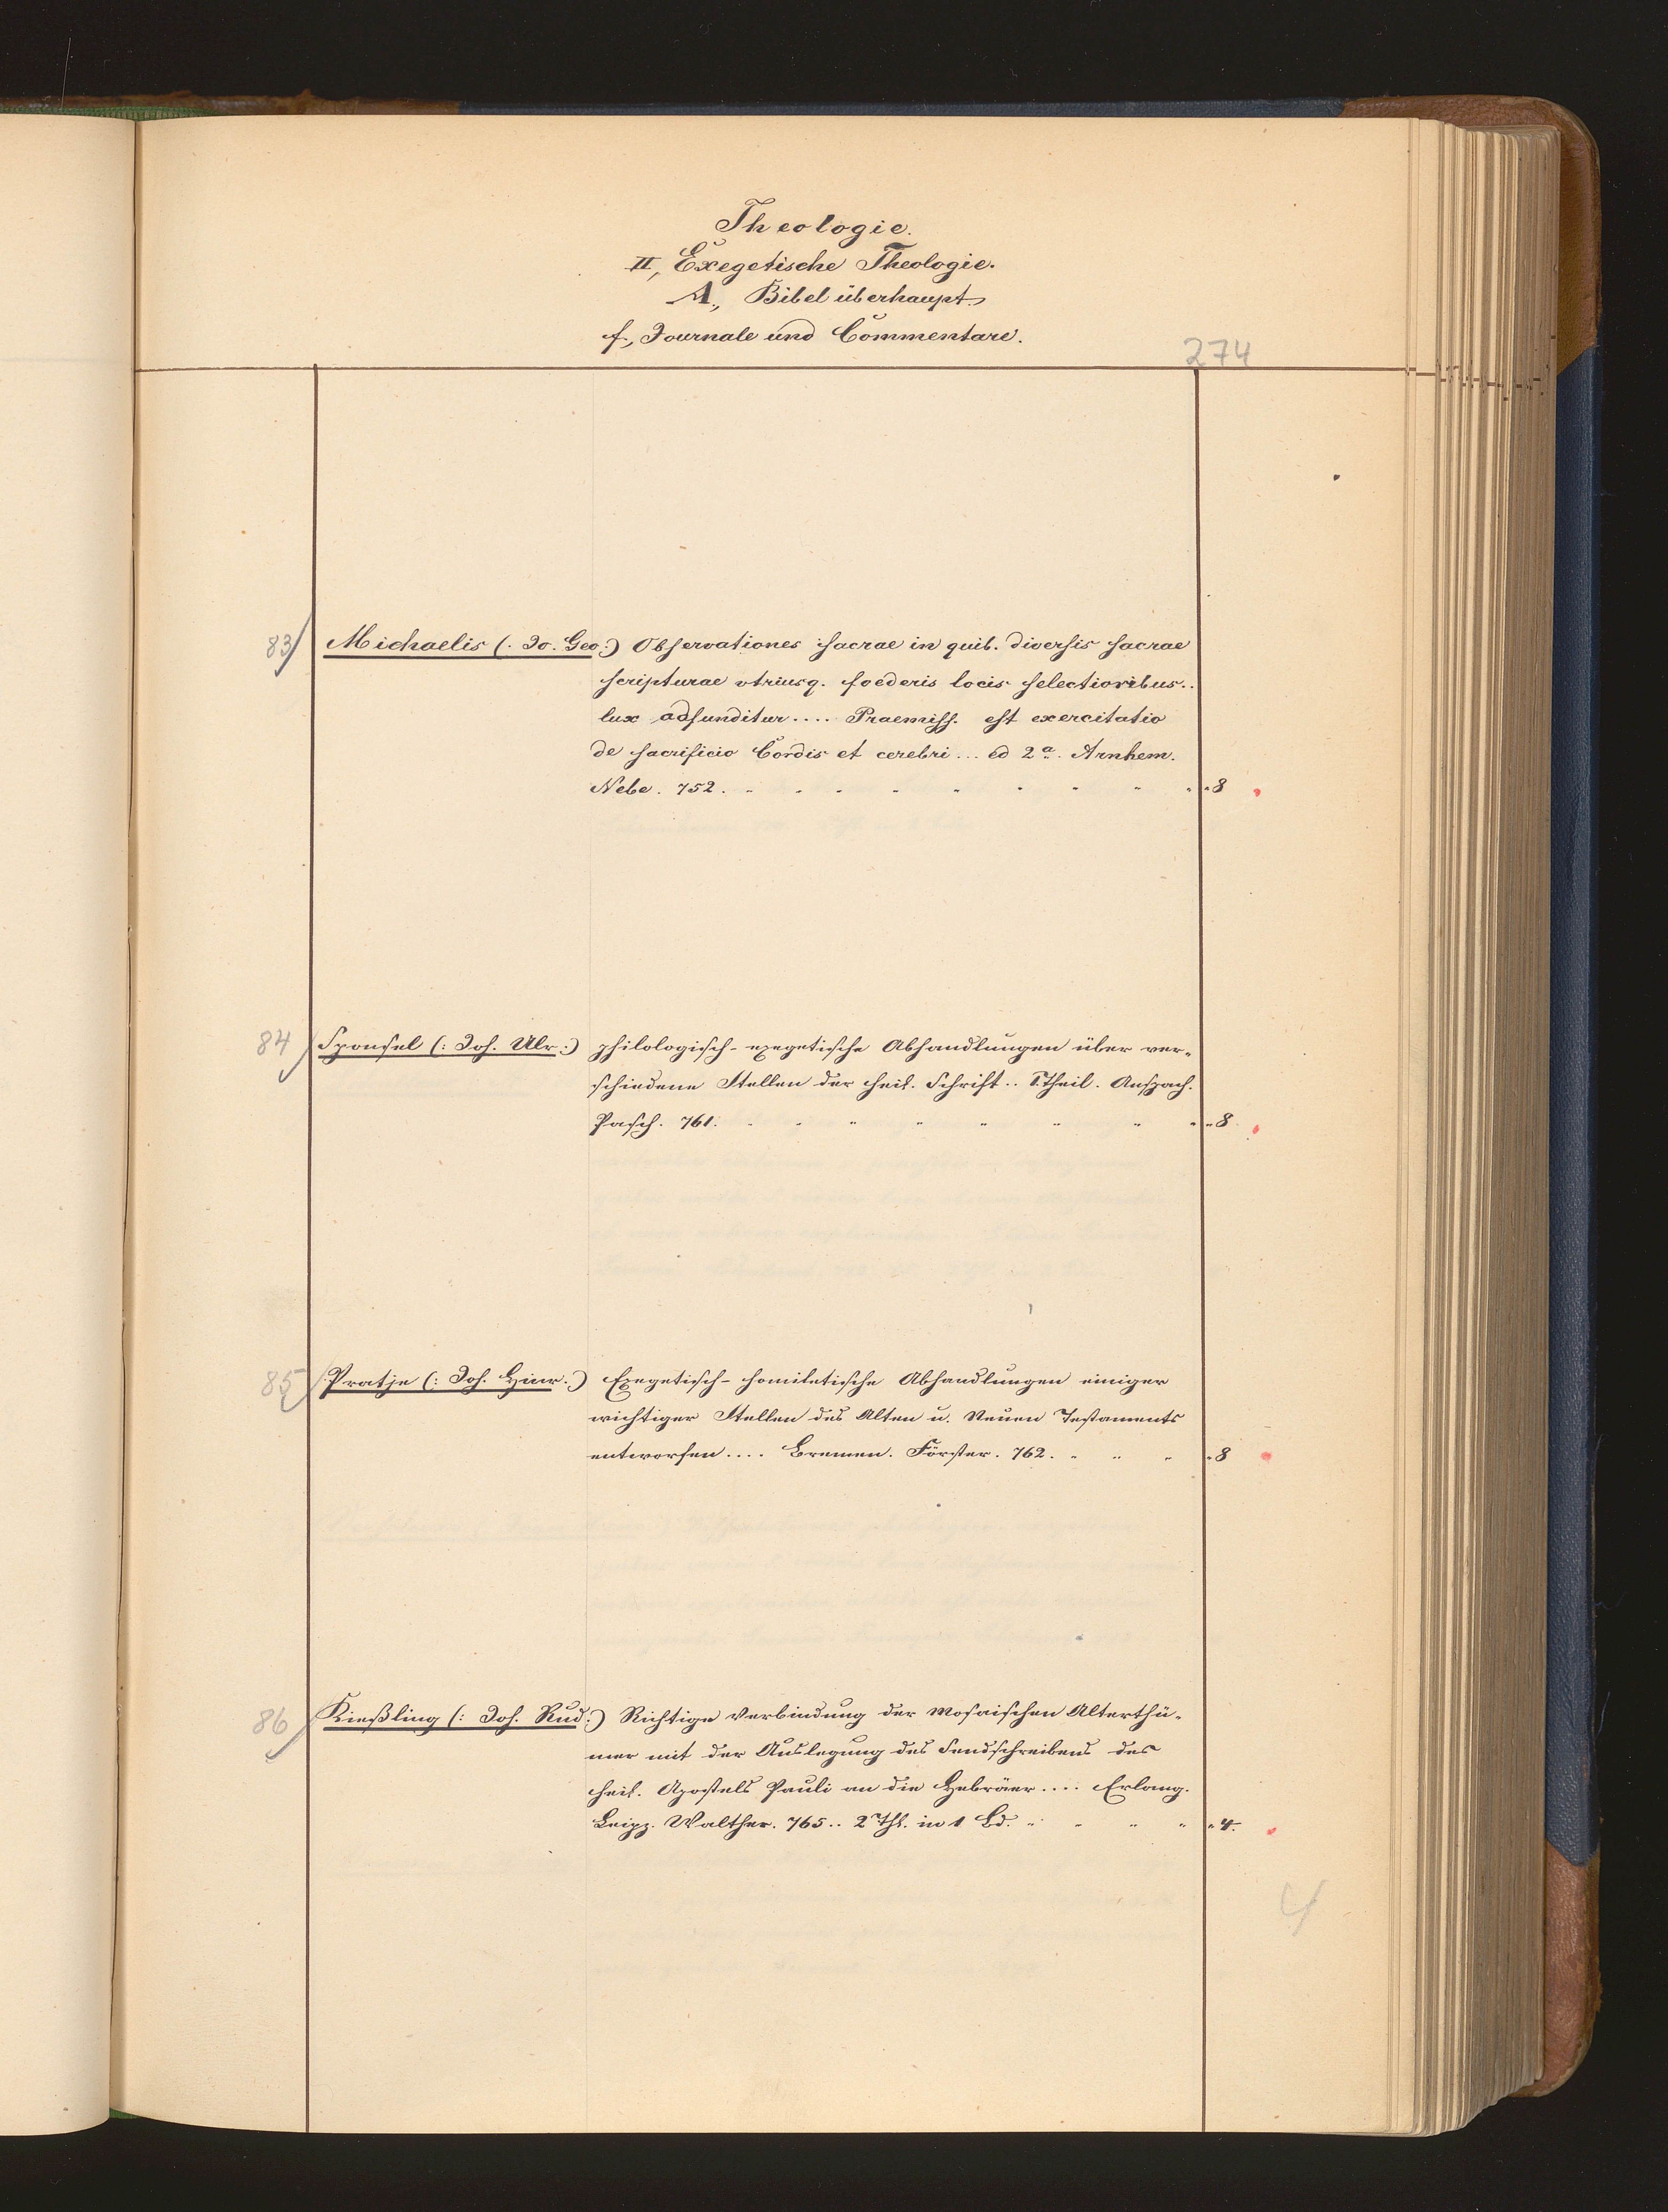 Theologie.
II, Exegetische Theologie.
A., Bibel überhaupt.
f, Journale und Commentare.
274
83 Michaelis (: Jo. Geo:) Observationes sacrae in quib. diversis sacrae
scripturae utriusq. foederis locis selectioribus..
lux adfunditur.... Praemiss. est exercitatio
de sacrificio Cordis et cerebri... ed 2a. Arnhem.
Nebe. 752. " " " " " " " " " " 8
84 Sponsel (: Joh. Ulr:) philologisch-exegetische Abhandlungen über ver-
schiedene Stellen der heil. Schrift.. 1. Theil. Anspach.
Pasch. 761. " " " " " " " " " 8
85 Pratje (: Joh. Hinr:) Exegetisch-homiletische Abhandlungen einiger
wichtiger Stellen des Alten u. Neuen Testaments
entworfen.... Bremen. Förster. 762. " " " " 8
86 Kießling (: Joh. Rud:) Richtige Verbindung der Mosaischen Alterthü-
mer mit der Auslegung des Sendschreibens des
heil. Apostels Pauli an die Hebräer.... Erlang.
Leipz. Walther. 765.. 2 Thl. in 1 Bd. " " " " " 4.
4